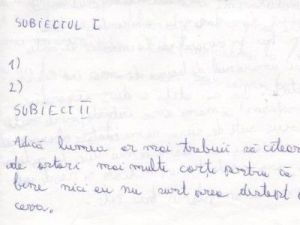 SUBIECTUL I
1)
2)
SUBIECT II
Adică lumea ar mai trebuii să citeas
de astazi mai multe carte pentru că
bine nici eu nu sunt prea destept
ceva.